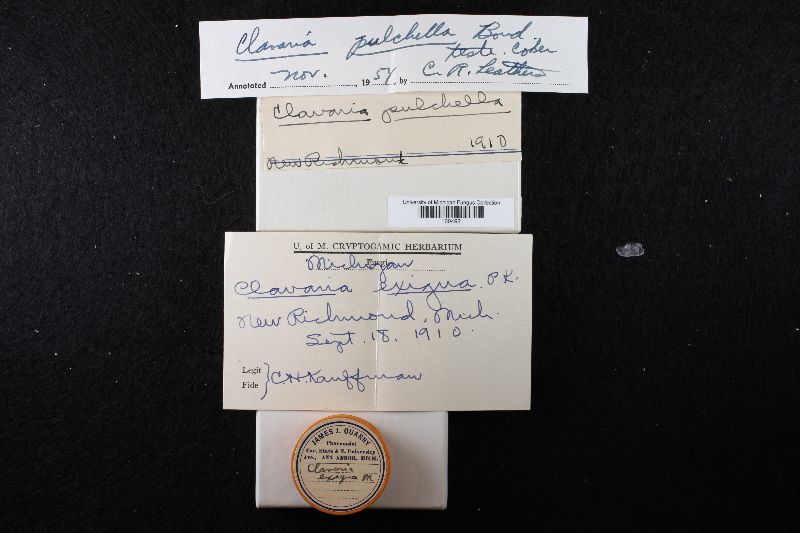 Clavaria pulchella Boud.
teste. Coker
Annotated Nov. , 1954 , by C. R. Leathers
Clavaria pulchella
1910
New Richmond
University of Michigan Fungus Collection
U. of M. CRYPTOGAMIC HERBARIUM
Fungi
Michigan
Clavaria exigua. PK.
New Richmond, Mich.
Sept. 18. 1910.
Legit
Fide
C.H. Kauffman
JAMES J. QUARRY
Pharmacist
Cor. State & N. University
Ave., ANN ARBOR, MICH.
Clavaria
exigua PK